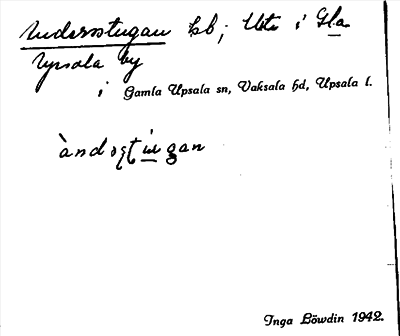 Undersstugan hb; Uts i Gla
Upsala by
i Gamla Upsala sn, Vaksala hd, Upsala l.
àndosţúgan
Inga Löwdin 1942.